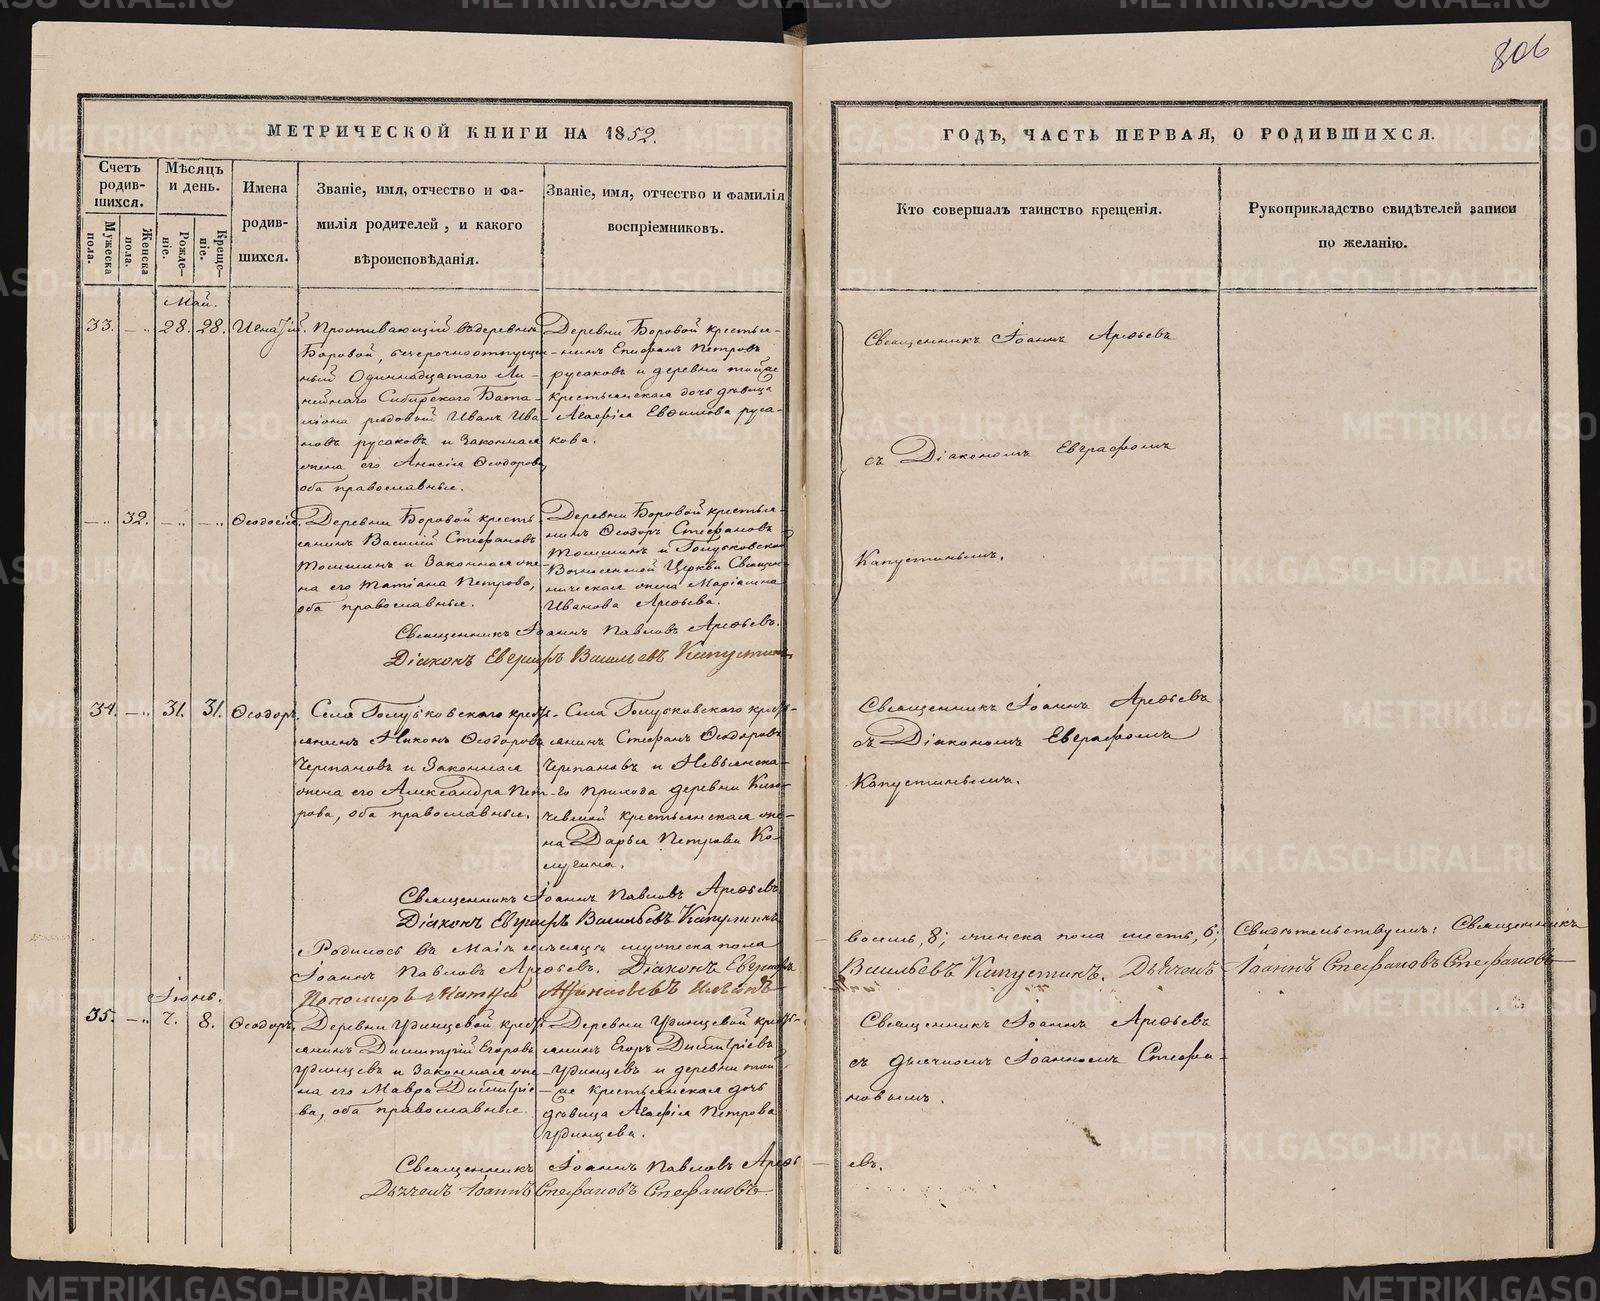 806
МЕТРИЧЕСКОЙ КНИГИ НА 1852.
ГОДЪ, ЧАСТЬ ПЕРВАЯ, О РОДИВШИХСЯ.
Счетъ родив-шихся.
Мужеска пола.
Женска пола.
Мѣсяцъ и день.
Рожде-ніе.
Креще-ніе.
Имена родив-шихся.
Званіе, имя, отчество и фа-
милія родителей, и какого
вѣроисповѣданія.
Званіе, имя, отчество и фамилія
воспріемниковъ.
Кто совершалъ таинство крещенія.
Рукоприкладство свидѣтелей записи
по желанію.
Май.
33. 28. 28. Игнатій.
Проживающій въ деревни
Боровой, безсрочноотпущен-
ный Одиннадцатаго Ли-
нейнаго Сибирскаго Бата-
ліона рядовый Иванъ Ива-
новъ Русаковъ и Законная
жена его Анисія Ѳеодорова,
оба православные.
Деревни Боровой крестья-
нинъ Епифанъ Петровъ
Русаковъ и деревни тойже
крестьянская дочь дѣвица
Агафія Евдимова Руса-
кова.
Священникъ Іоаннъ Арефьевъ
съ Діакономъ Евграфомъ
Капустинымъ.
32. Ѳеодосія.
Деревни Боровой кресть-
янинъ Василій Стефановъ
Томшинъ и Законная же-
на его Татіана Петрова,
оба православные.
Деревни Боровой крестья-
нинъ Ѳеодоръ Стефановъ
Томшинъ и Голубковской
Вознесенской Церкви Священ-
ническая жена Маріамна
Иванова Арефьева.
Священникъ Іоаннъ Павловъ Арефьевъ.
Діаконъ Евграфъ Васильевъ Капустинъ
34. 31. 31. Ѳеодоръ.
Села Голубковскаго кресть-
янинъ Никонъ Ѳеодоровъ
Черпановъ и Законная
жена его Александра Пет-
рова, оба православные.
Села Голубковскаго кресть-
янинъ Стефанъ Ѳеодоровъ
Черпановъ и Невьянска-
го прихода деревни
крестьянская же-
на Дарья Петрова
Священникъ Іоаннъ Арефьевъ
съ Діакономъ Евграфомъ
Капустинымъ.
Священникъ Іоаннъ Павловъ Арефьевъ
Діаконъ Евграфъ Васильевъ Капустинъ
Родилось въ Маіѣ мѣсяцѣ мужеска пола восемь, 8; женска пола шесть, 6; Свидѣтельствуемъ: Священникъ
Іоаннъ Павловъ Арефьевъ. Діаконъ Евграфъ Васильевъ Капустинъ. Дьячекъ Іоаннъ Стефановъ Стефановъ
Пономарь Матѳей Афанасьевъ
Іюнь.
35. 7. 8. Ѳеодоръ.
Деревни Удинцевой кресть-
янинъ Димитрій Егоровъ
Удинцевъ и Законная же-
на его Мавра Димитріе-
ва, оба православные.
Деревни Удинцевой кресть-
янинъ Егоръ Димитріевъ
Удинцевъ и деревни той
же крестьянская дочь
дѣвица Агафія Петрова
Удинцева.
Священникъ Іоаннъ Арефьевъ
съ дьячкомъ Іоанномъ Стефа-
новымъ.
Священникъ Іоаннъ Павловъ Арефь-евъ.
Дьячекъ Іоаннъ Стефановъ Стефановъ
METRIKI.GASO-URAL.RU